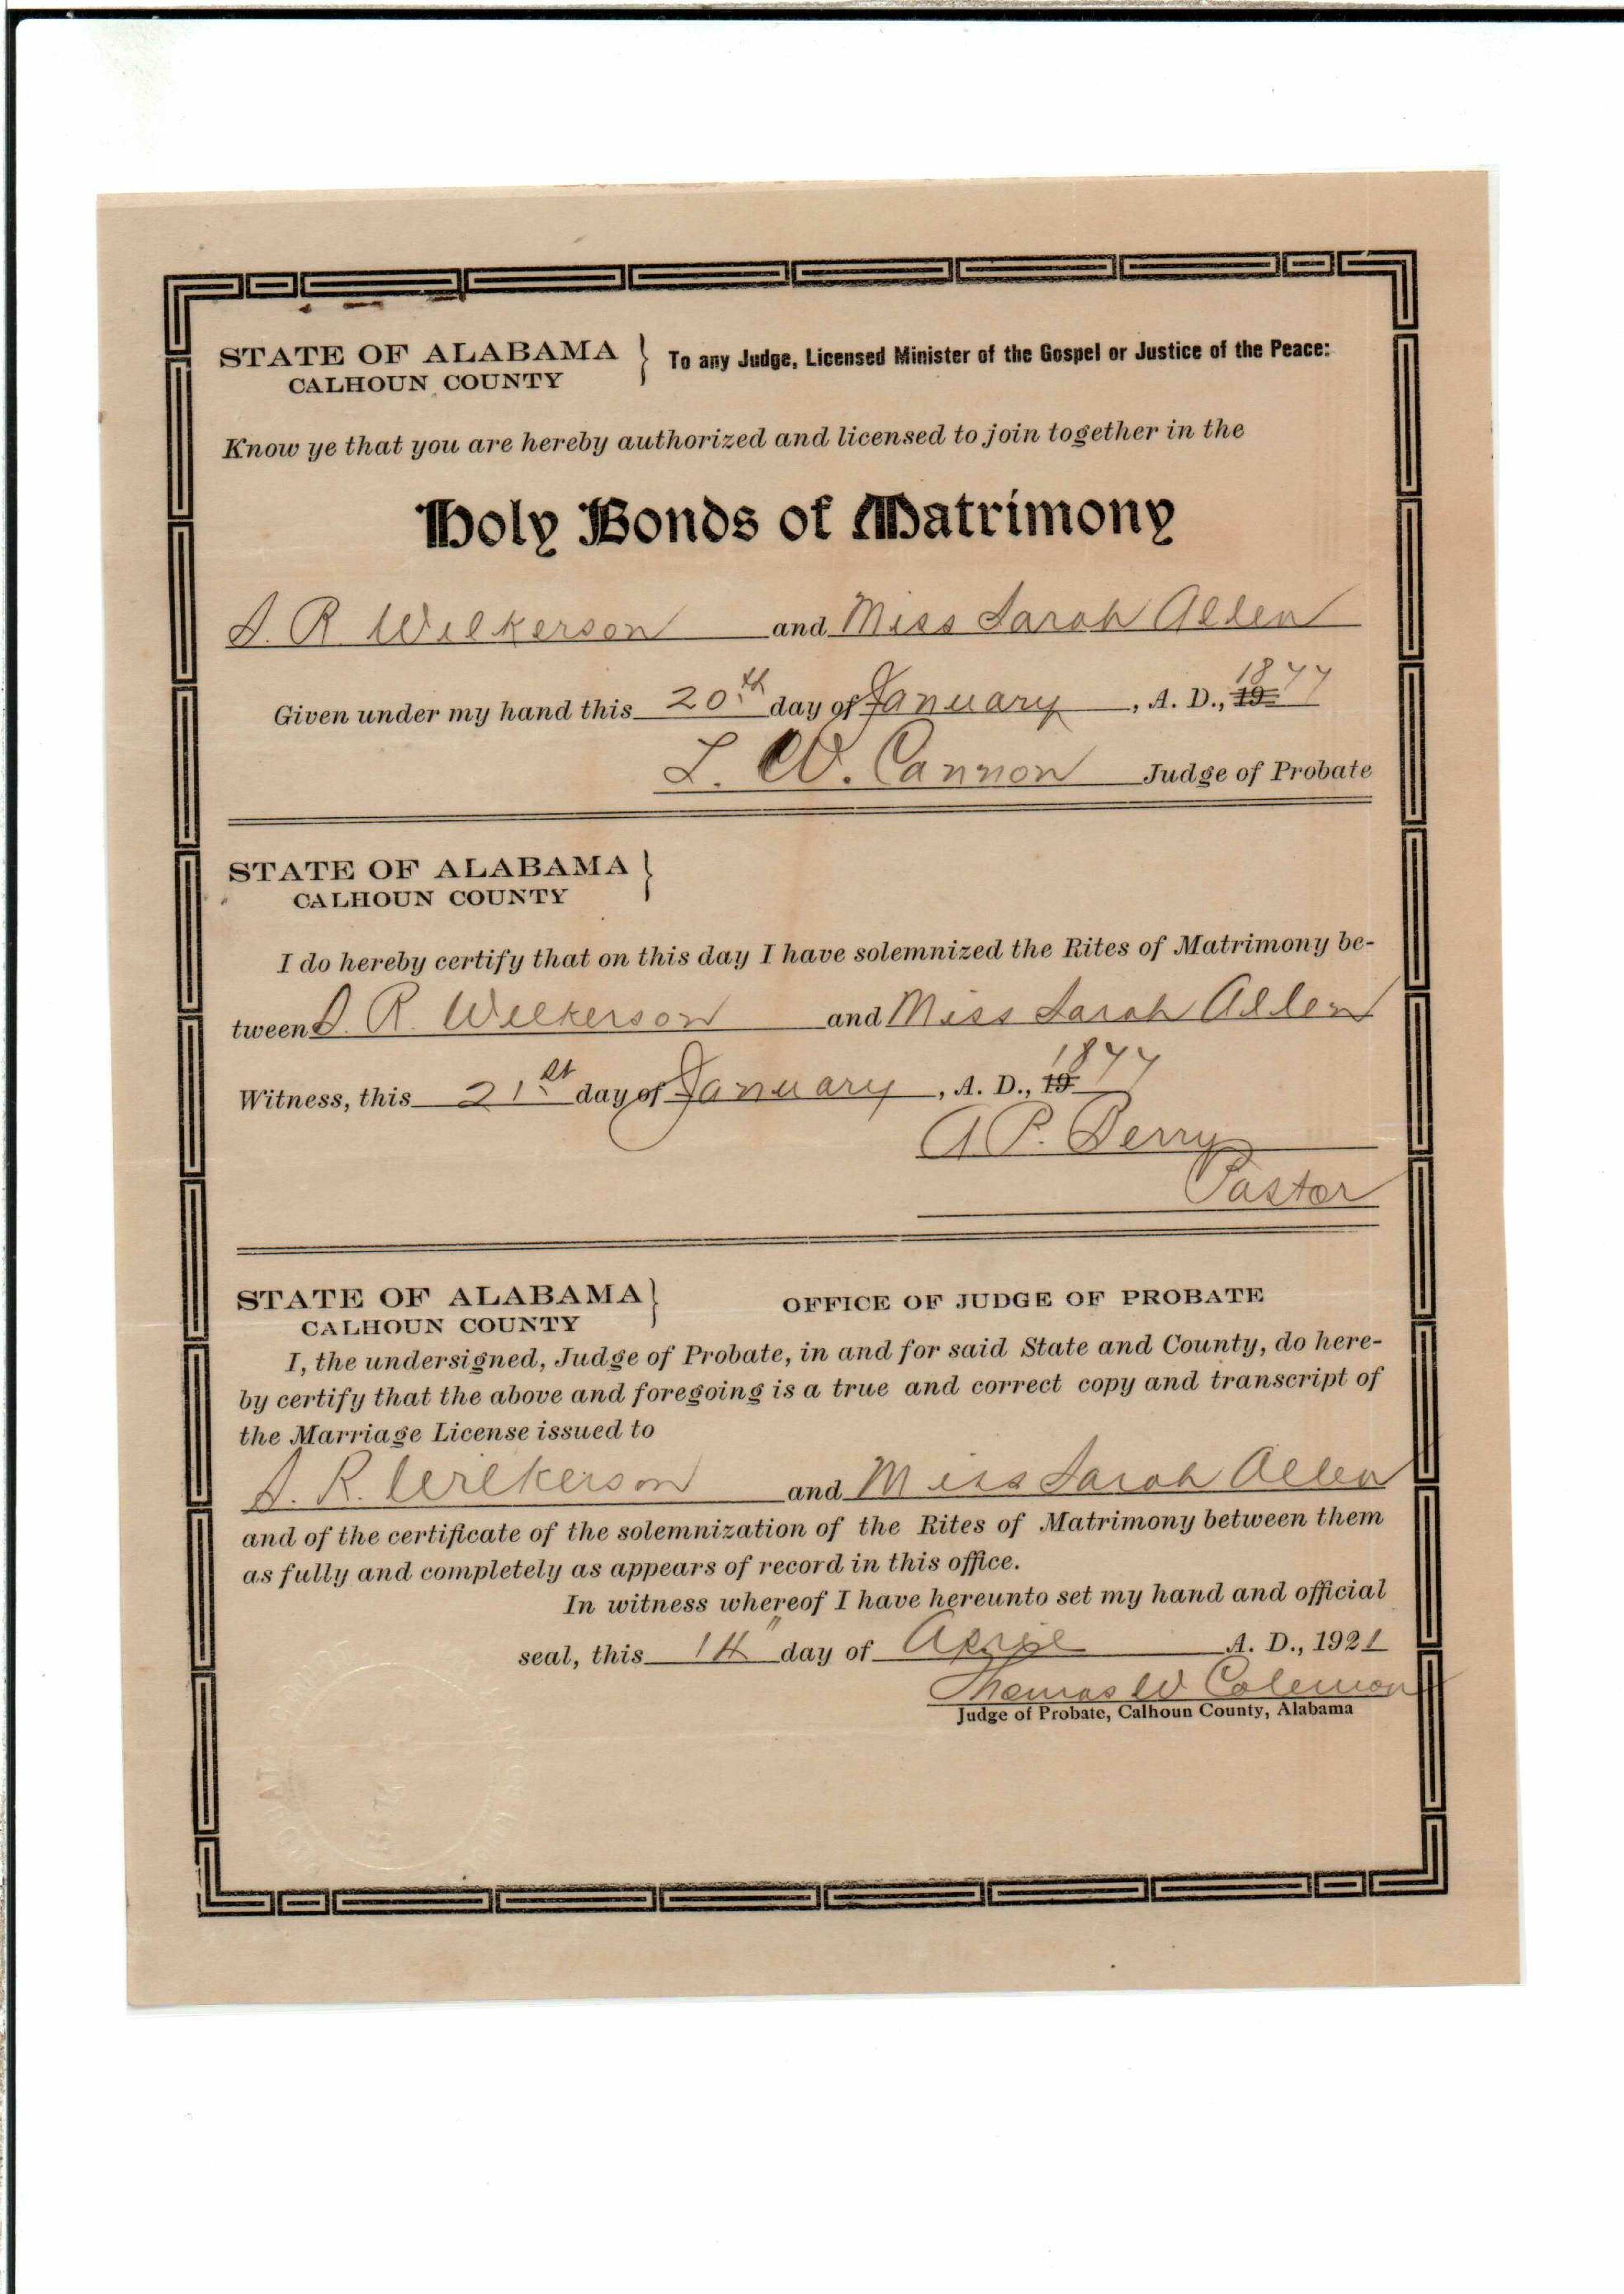 STATE OF ALABAMA } To any Judge, Licensed Minister of the Gospel or Justice of the Peace:
CALHOUN COUNTY
Know ye that you are hereby authorized and licensed to join together in the
Holy Bonds of Matrimony
S. R Wilkerson and Miss Sarah Allen
Given under my hand this 20th day of January, A. D., 19 1877
L. W. Cannon Judge of Probate
STATE OF ALABAMA }
CALHOUN COUNTY
I do hereby certify that on this day I have solemnized the Rites of Matrimony be-
tween S. R. Wilkerson and Miss Sarah Allen
Witness, this 21st day of January, A. D., 19 1877
A P. Berry
Pastor
STATE OF ALABAMA } OFFICE OF JUDGE OF PROBATE
CALHOUN COUNTY
I, the undersigned, Judge of Probate, in and for said State and County, do here-
by certify that the above and foregoing is a true and correct copy and transcript of
the Marriage License issued to
S. R. Wilkerson and Miss Sarah Allen
and of the certificate of the solemnization of the Rites of Matrimony between them
as fully and completely as appears of record in this office.
In witness whereof I have hereunto set my hand and official
seal, this 14" day of April A. D., 1921
Thomas W Coleman
Judge of Probate, Calhoun County, Alabama